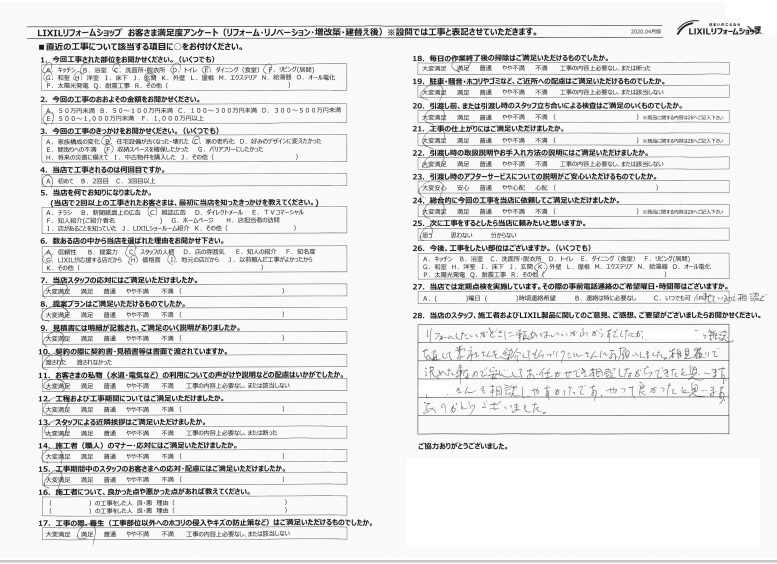 LIXILリフォームショップ お客さま満足度アンケート（リフォーム・リノベーション・増改築・建替え後）※設問では工事と表記させていただきます。
2020.04月版
住まいのことなら
LIXILリフォームショップ
■ 直近の工事について該当する項目に○をお付けください。
1．今回工事された部位をお聞かせください。（いくつでも）
A．キッチン B．浴室 C．洗面所・脱衣所 D．トイレ E．ダイニング（食堂） F．リビング（居間）
G．和室 H．洋室 I．床下 J．玄関 K．外壁 L．屋根 M．エクステリア N．給湯器 O．オール電化
P．太陽光発電 Q．耐震工事 R．その他（ ）
2．今回の工事のおおよその金額をお聞かせください。
A．50万円未満 B．50～100万円未満 C．100～300万円未満 D．300～500万円未満
E．500～1,000万円未満 F．1,000万円以上
3．今回の工事のきっかけをお聞かせください。（いくつでも）
A．家族構成の変化 B．住宅設備が古くなった・壊れた C．家の老朽化 D．好みのデザインに変えたかった
E．間取りへの不満 F．収納スペースを確保したかった G．バリアフリーにしたかった
H．将来の災害に備えて I．中古物件を購入した J．その他（ ）
4．当店で工事されるのは何回目ですか。
A．初めて B．2回目 C．3回目以上
5．当店を何でお知りになりましたか。
（当店で2回以上の工事されたお客さまは、最初に当店を知ったきっかけを教えてください。）
A．チラシ B．新聞紙面上の広告 C．雑誌広告 D．ダイレクトメール E．TVコマーシャル
F．知人紹介（ご紹介者名 ） G．ホームページ H．店担当者の訪問
I．店があることを知っていた J．LIXILショールーム紹介 K．その他（ ）
6．数ある店の中から当店を選ばれた理由をお聞かせ下さい。
A．信頼性 B．提案力 C．スタッフの人柄 D．店の雰囲気 E．知人の紹介 F．知名度
G．LIXILが応援する店だから H．価格面 I．地元の店だから J．以前頼んだ工事がよかったから
K．その他（ ）
7．当店スタッフの応対にはご満足いただけましたか。
大変満足 満足 普通 やや不満 不満（ ）
8．提案プランはご満足いただけるものでしたか。
大変満足 満足 普通 やや不満 不満（ ）
9．見積書には明細が記載され、ご満足のいく説明がありましたか。
大変満足 満足 普通 やや不満 不満（ ）
10．契約の際に契約書・見積書等は書面で渡されていますか。
渡された 渡されなかった
11．お客さまの私物（水道・電気など）の利用についての声がけや説明などの配慮はいかがでしたか。
大変満足 満足 普通 やや不満 不満 工事の内容上必要なし、または該当しない
12．工程および工事期間についてはご満足いただけましたか。
大変満足 満足 普通 やや不満 不満（ ）
13．スタッフによる近隣挨拶はご満足いただけましたか。
大変満足 満足 普通 やや不満 不満 工事の内容上必要なし、または断った
14．施工者（職人）のマナー・応対にはご満足いただけましたか。
大変満足 満足 普通 やや不満 不満（ ）
15．工事期間中のスタッフのお客さまへの応対・配慮にはご満足いただけましたか。
大変満足 満足 普通 やや不満 不満（ ）
16．施工者について、良かった点や悪かった点があれば教えてください。
（ ）の工事をした人 良・悪 理由（ ）
（ ）の工事をした人 良・悪 理由（ ）
17．工事の際、養生（工事部位以外へのホコリの侵入やキズの防止策など）はご満足いただけるものでしたか。
大変満足 満足 普通 やや不満 不満 工事の内容上必要なし、または該当しない
18．毎日の作業終了後の掃除はご満足いただけるものでしたか。
大変満足 満足 普通 やや不満 不満 工事の内容上必要なし、または断った
19．駐車・騒音・ホコリやゴミなど、ご近所への配慮はご満足いただけましたか。
大変満足 満足 普通 やや不満 不満 工事の内容上必要なし、または該当しない
20．引渡し前、または引渡し時のスタッフ立ち合いによる検査はご満足のいくものでしたか。
大変満足 満足 普通 やや不満 不満（ ）※商品に関する内容は28へご記入下さい
21．工事の仕上がりにはご満足いただけましたか。
大変満足 満足 普通 やや不満 不満（ ）※商品に関する内容は28へご記入下さい
22．引渡し時の取扱説明やお手入れ方法の説明にはご満足いただけましたか。
大変満足 満足 普通 やや不満 不満 工事の内容上必要なし、または該当しない
23．引渡し時のアフターサービスについての説明がご安心いただけるものでしたか。
大変安心 安心 普通 やや心配 心配（ ）
24．総合的に今回の工事を当店に依頼してご満足いただけましたか。
大変満足 満足 普通 やや不満 不満（ ）※商品に関する内容は28へご記入下さい
25．次に工事をするとしたら当店に頼みたいと思いますか。
思う 思わない 分からない
26．今後、工事をしたい部位はございますか。（いくつでも）
A．キッチン B．浴室 C．洗面所・脱衣所 D．トイレ E．ダイニング（食堂） F．リビング（居間）
G．和室 H．洋室 I．床下 J．玄関 K．外壁 L．屋根 M．エクステリア N．給湯器 O．オール電化
P．太陽光発電 Q．耐震工事 R．その他（ ）
27．当店では定期点検を実施しています。その際の事前電話連絡のご希望曜日・時間帯はございますか。
A．（ ）曜日（ ）時頃連絡希望 B．連絡は特に必要なし C．いつでも可
28．当店のスタッフ、施工者およびLIXIL製品に関してのご意見、ご感想、ご要望がございましたらお聞かせください。
リフォームしたいがどこに頼めばいいかわからずでしたが、
ありがとうございました。
ご協力ありがとうございました。